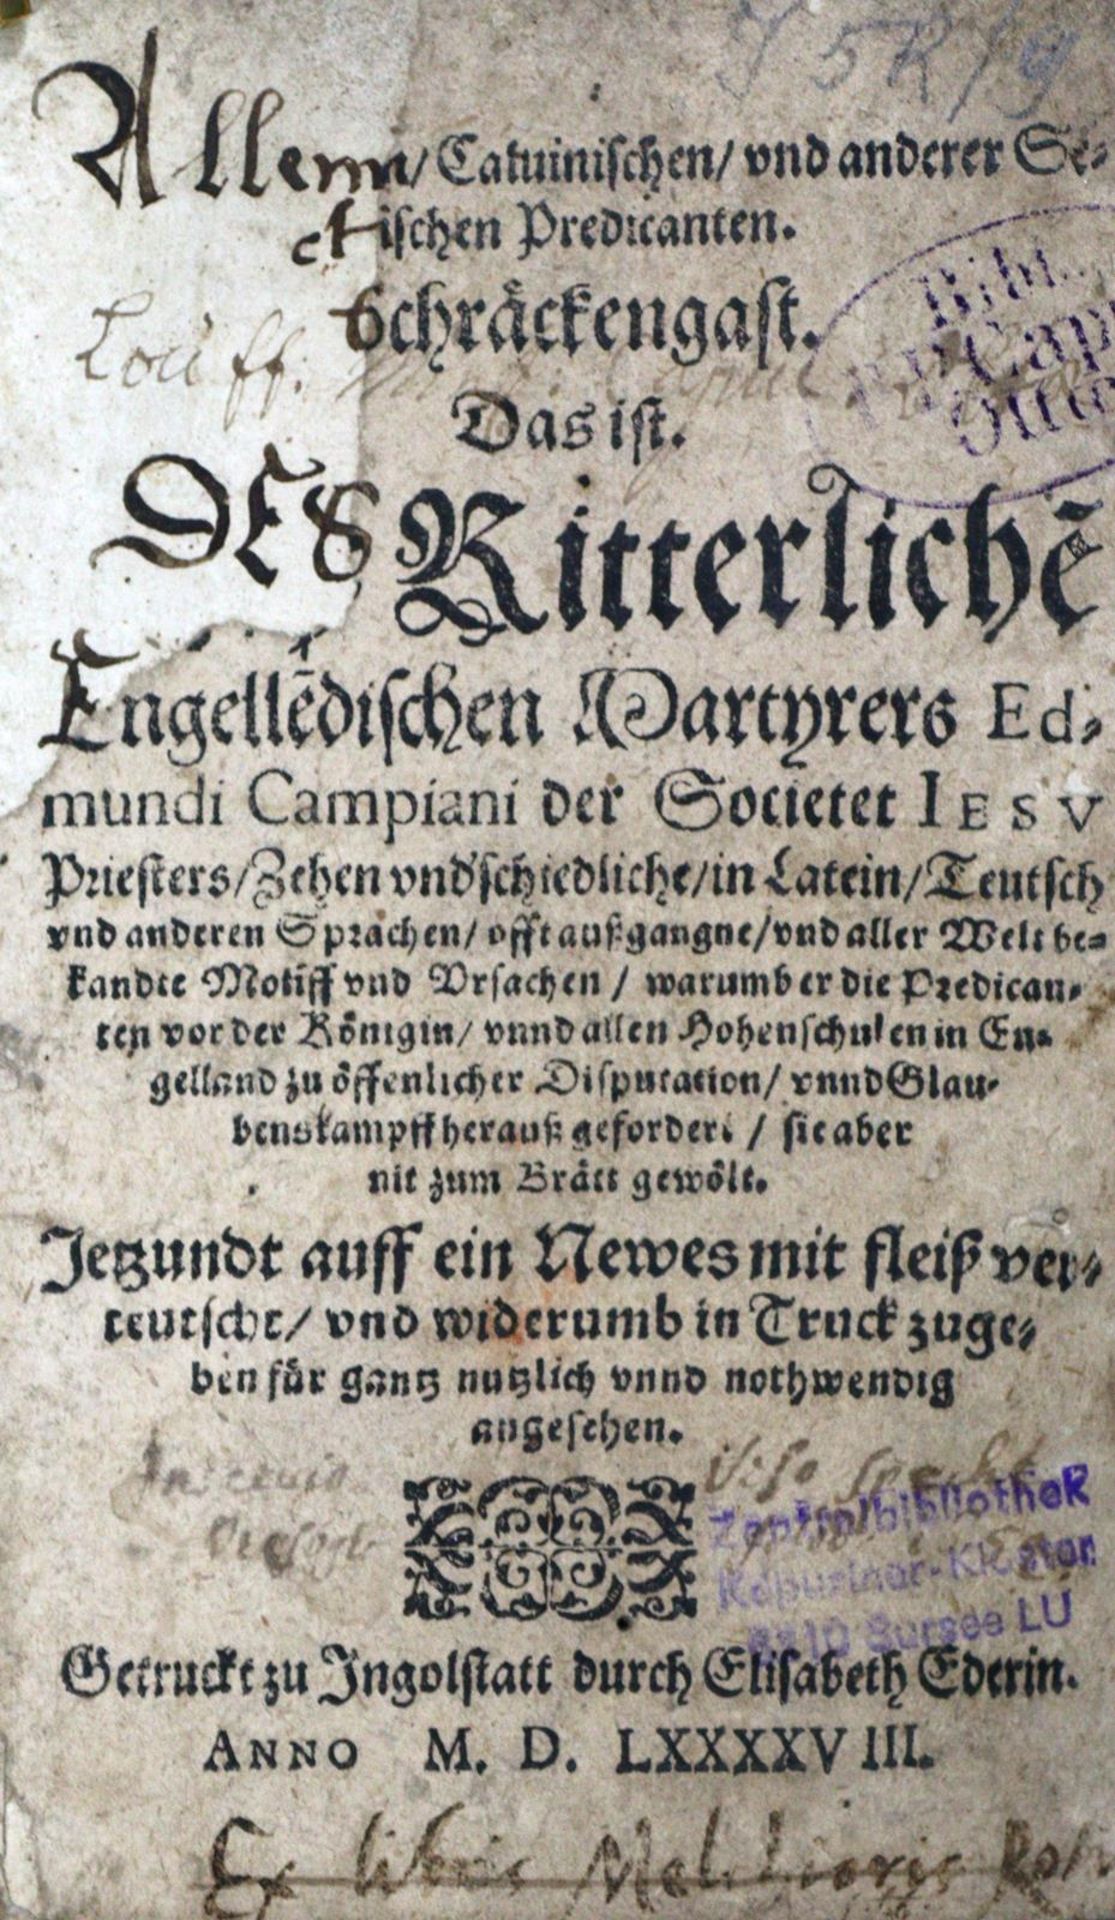 J 5R/9
Allenn/ Caluinischen/ vnd anderer Se-
ctischen Predicanten.
Schräckengast.
Das ist.
DES Ritterlichē
Engellēdischen Martyrers Ed-
mundi Campiani der Societet IESV
Priesters/ Zehen vnd'schiedliche/ in Latein/ Teutsch
vnd anderen Sprachen/ offt außgangne/ vnd aller Welt be-
kandte Motiff vnd Vrsachen / warumb er die Predican-
ten vor der Königin/ vnnd allen Hohenschulen in En-
gelland zu öffenlicher Disputation/ vnnd Glau-
benskampff herauß gefordert / sie aber
nit zum Brätt gewölt.
Jetzundt auff ein Newes mit fleiß ver-
teutscht/ vnd widerumb in Truck zuge-
ben für gantz nutzlich vnnd nothwendig
angesehen.
Zentralbibliothek
Kapuziner-Kloster
6210 Sursee LU
Getruckt zu Ingolstatt durch Elisabeth Ederin.
ANNO M. D. LXXXXVIII.
Ex libris Melchioris